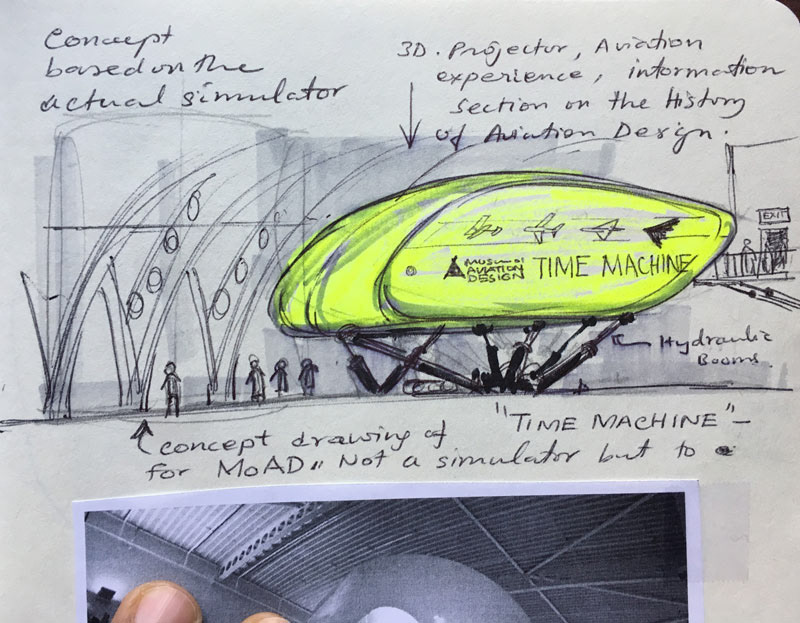 Concept
based on the
actual simulator
3D. Projector, Aviation
experience, information
section on the History
of Aviation Design.
EXIT
MUSEUM of
AVIATION
DESIGN
TIME MACHINE
Hydraulic
Booms.
concept drawing of "TIME MACHINE" –
for MoAD,, Not a simulator but to